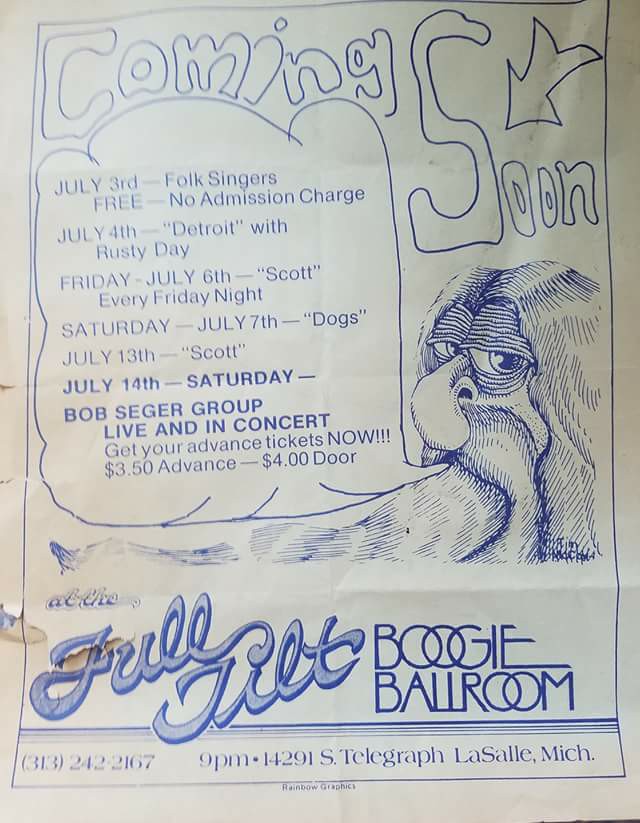 Coming Soon
JULY 3rd — Folk Singers
FREE — No Admission Charge
JULY 4th — "Detroit" with
Rusty Day
FRIDAY - JULY 6th — "Scott"
Every Friday Night
SATURDAY — JULY 7th — "Dogs"
JULY 13th — "Scott"
JULY 14th — SATURDAY —
BOB SEGER GROUP
LIVE AND IN CONCERT
Get your advance tickets NOW!!!
$3.50 Advance — $4.00 Door
at the
Full Tilt BOOGIE
BALLROOM
(313) 242-2167 9pm • 14291 S. Telegraph LaSalle, Mich.
Rainbow Graphics